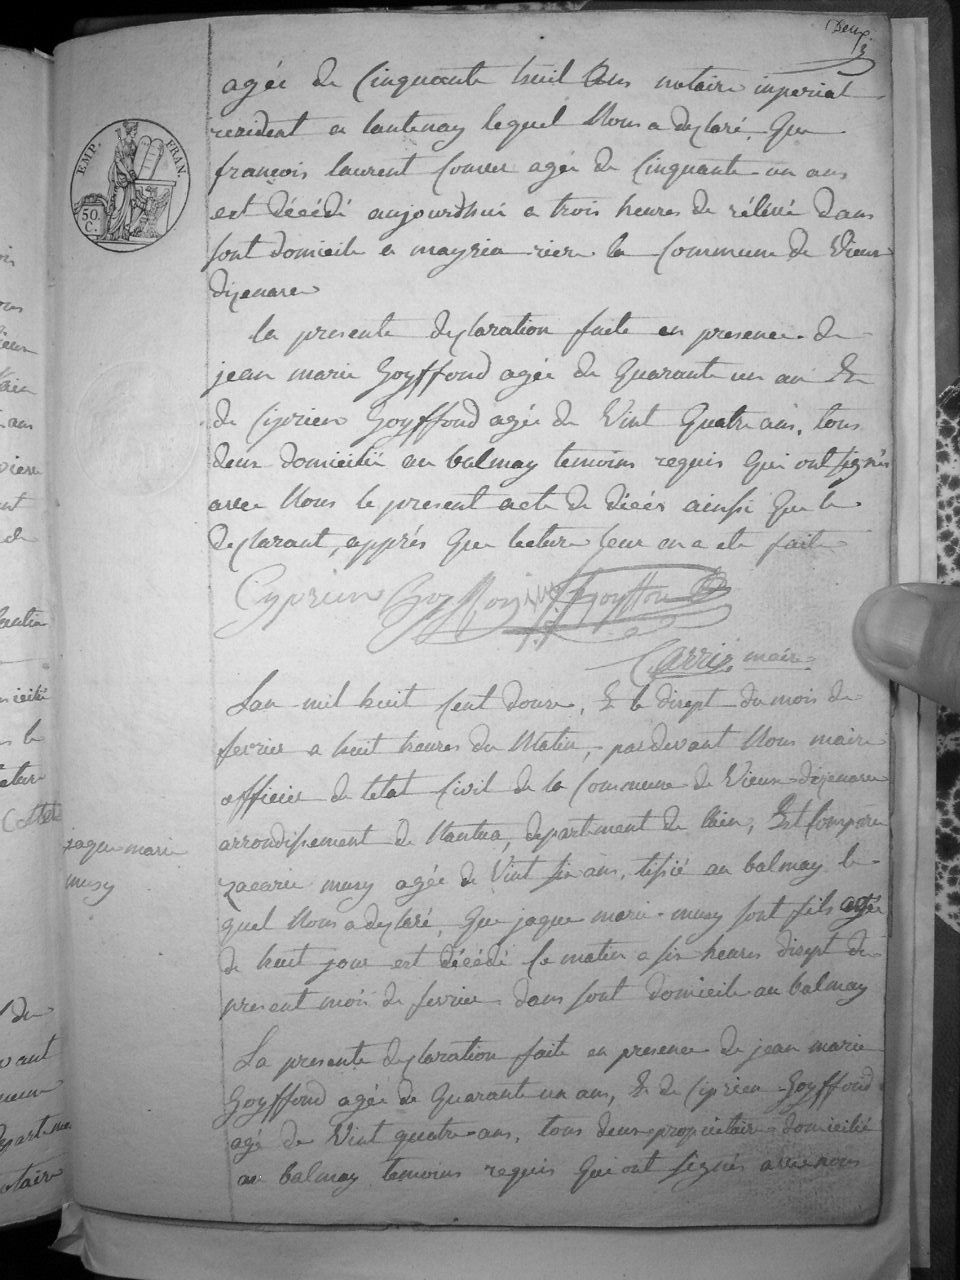 Deux
agée de Cinquante huit Ans notaire inperial
resident a lantenay lequel Nous a declaré, Que
françois laurent agée de Cinquante un ans
est décédé aujourdhui a trois heures de rélevé dans
sont domicile a mayria riere la Commune de Vieux
dizenave
la presente declaration faite en presence de
jean marie Goyffond agée de Quarante un an Et
de Ciprien Goyffond agée de Vint Quatre ans, tous
deux domicilié au balmay temoins requis Qui ont signés
avec Nous le present acte de décés ainsi Que le
declarant, apprés Que lecture leur en a eté faite
Cyprien Goyffon Goyffon
Carrier maire
EMP. FRAN.
50.
C.
Lan mil huit Cent douze, Et le disept du mois de
fevrier a huit heures du Matin, pardevant Nous maire
officier de letat Civil de la Commune de Vieux dizenave
arrondissement de Nantua, departement de lain, Est Comparu
jaque marie
musy
zacarie musy agée de Vint six ans, tisié au balmay le
quel Nous a declaré, Que jaque marie musy sont fils agée
de huit jour est décédé Ce matin a six heures disept du
present mois de fevrier dans sont domicile au balmay
La presente declaration faite en presence de jean marie
Goyffond agée de Quarante un ans, Et de Ciprien Goyffond
agé de Vint quatre ans, tous deux propriétaire domicilié
au balmay temoins requis Qui ont signés avec nous